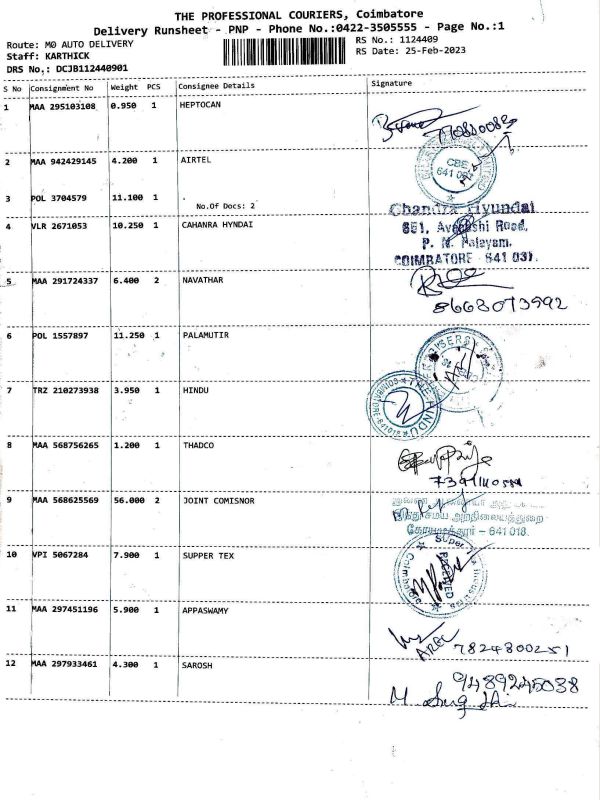 THE PROFESSIONAL COURIERS, Coimbatore
Delivery Runsheet - PNP - Phone No.:0422-3505555 - Page No.:1
Route: M0 AUTO DELIVERY
RS No.: 1124409
Staff: KARTHICK
RS Date: 25-Feb-2023
DRS No,: DCJB112440901
S No Consignment No Weight PCS Consignee Details Signature
1 MAA 295103108 0.950 1 HEPTOCAN
2 MAA 942429145 4.200 1 AIRTEL
CBE
641
3 POL 3704579 11.100 1
No.Of Docs: 2
4 VLR 2671053 10.250 1 CAHANRA HYNDAI
Chandra Hyundai
651, Avanashi Road,
P. N. Palayam,
COIMBATORE - 641 037.
5 MAA 291724337 6.400 2 NAVATHAR
8668073992
6 POL 1557897 11.250 1 PALAMUTIR
7 TRZ 210273938 3.950 1 HINDU
THE HINDU
COIMBATORE-641018
8 MAA 568756265 1.200 1 THADCO
9 MAA 568625569 56.000 2 JOINT COMISNOR
அறநிலையத்துறை
கோயமுத்தூர் - 641 018.
10 VPI 5067284 7.900 1 SUPPER TEX
RECEIVED
11 MAA 297451196 5.900 1 APPASWAMY
7824800251
12 MAA 297933461 4.300 1 SAROSH
9489245038